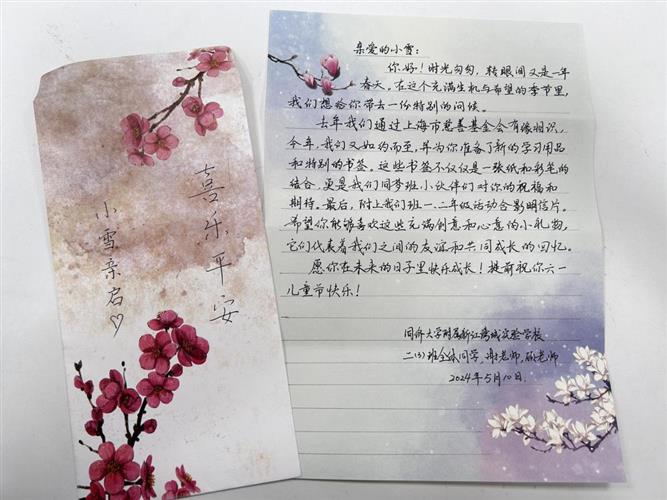 喜乐平安
小雪亲启♡
亲爱的小雪:
你好!时光匆匆,转眼间又是一年
春天。在这个充满生机与希望的季节里,
我们想给你带去一份特别的问候。
去年我们通过上海市慈善基金会有缘相识,
今年,我们又如约而至,并为你准备了新的学习用品
和特别的书签。这些书签不仅仅是一张纸和彩笔的
结合,更是我们同梦班小伙伴们对你的祝福和
期待。最后,附上我们班一、二年级活动合影明信片。
希望你能够喜欢这些充满创意和心意的小礼物,
它们代表着我们之间的友谊和共同成长的回忆。
愿你在未来的日子里快乐成长!提前祝你六一
儿童节快乐!
同济大学附属新江湾城实验学校
二(3)班全体同学,谢老师,顾老师
2024年5月10日.